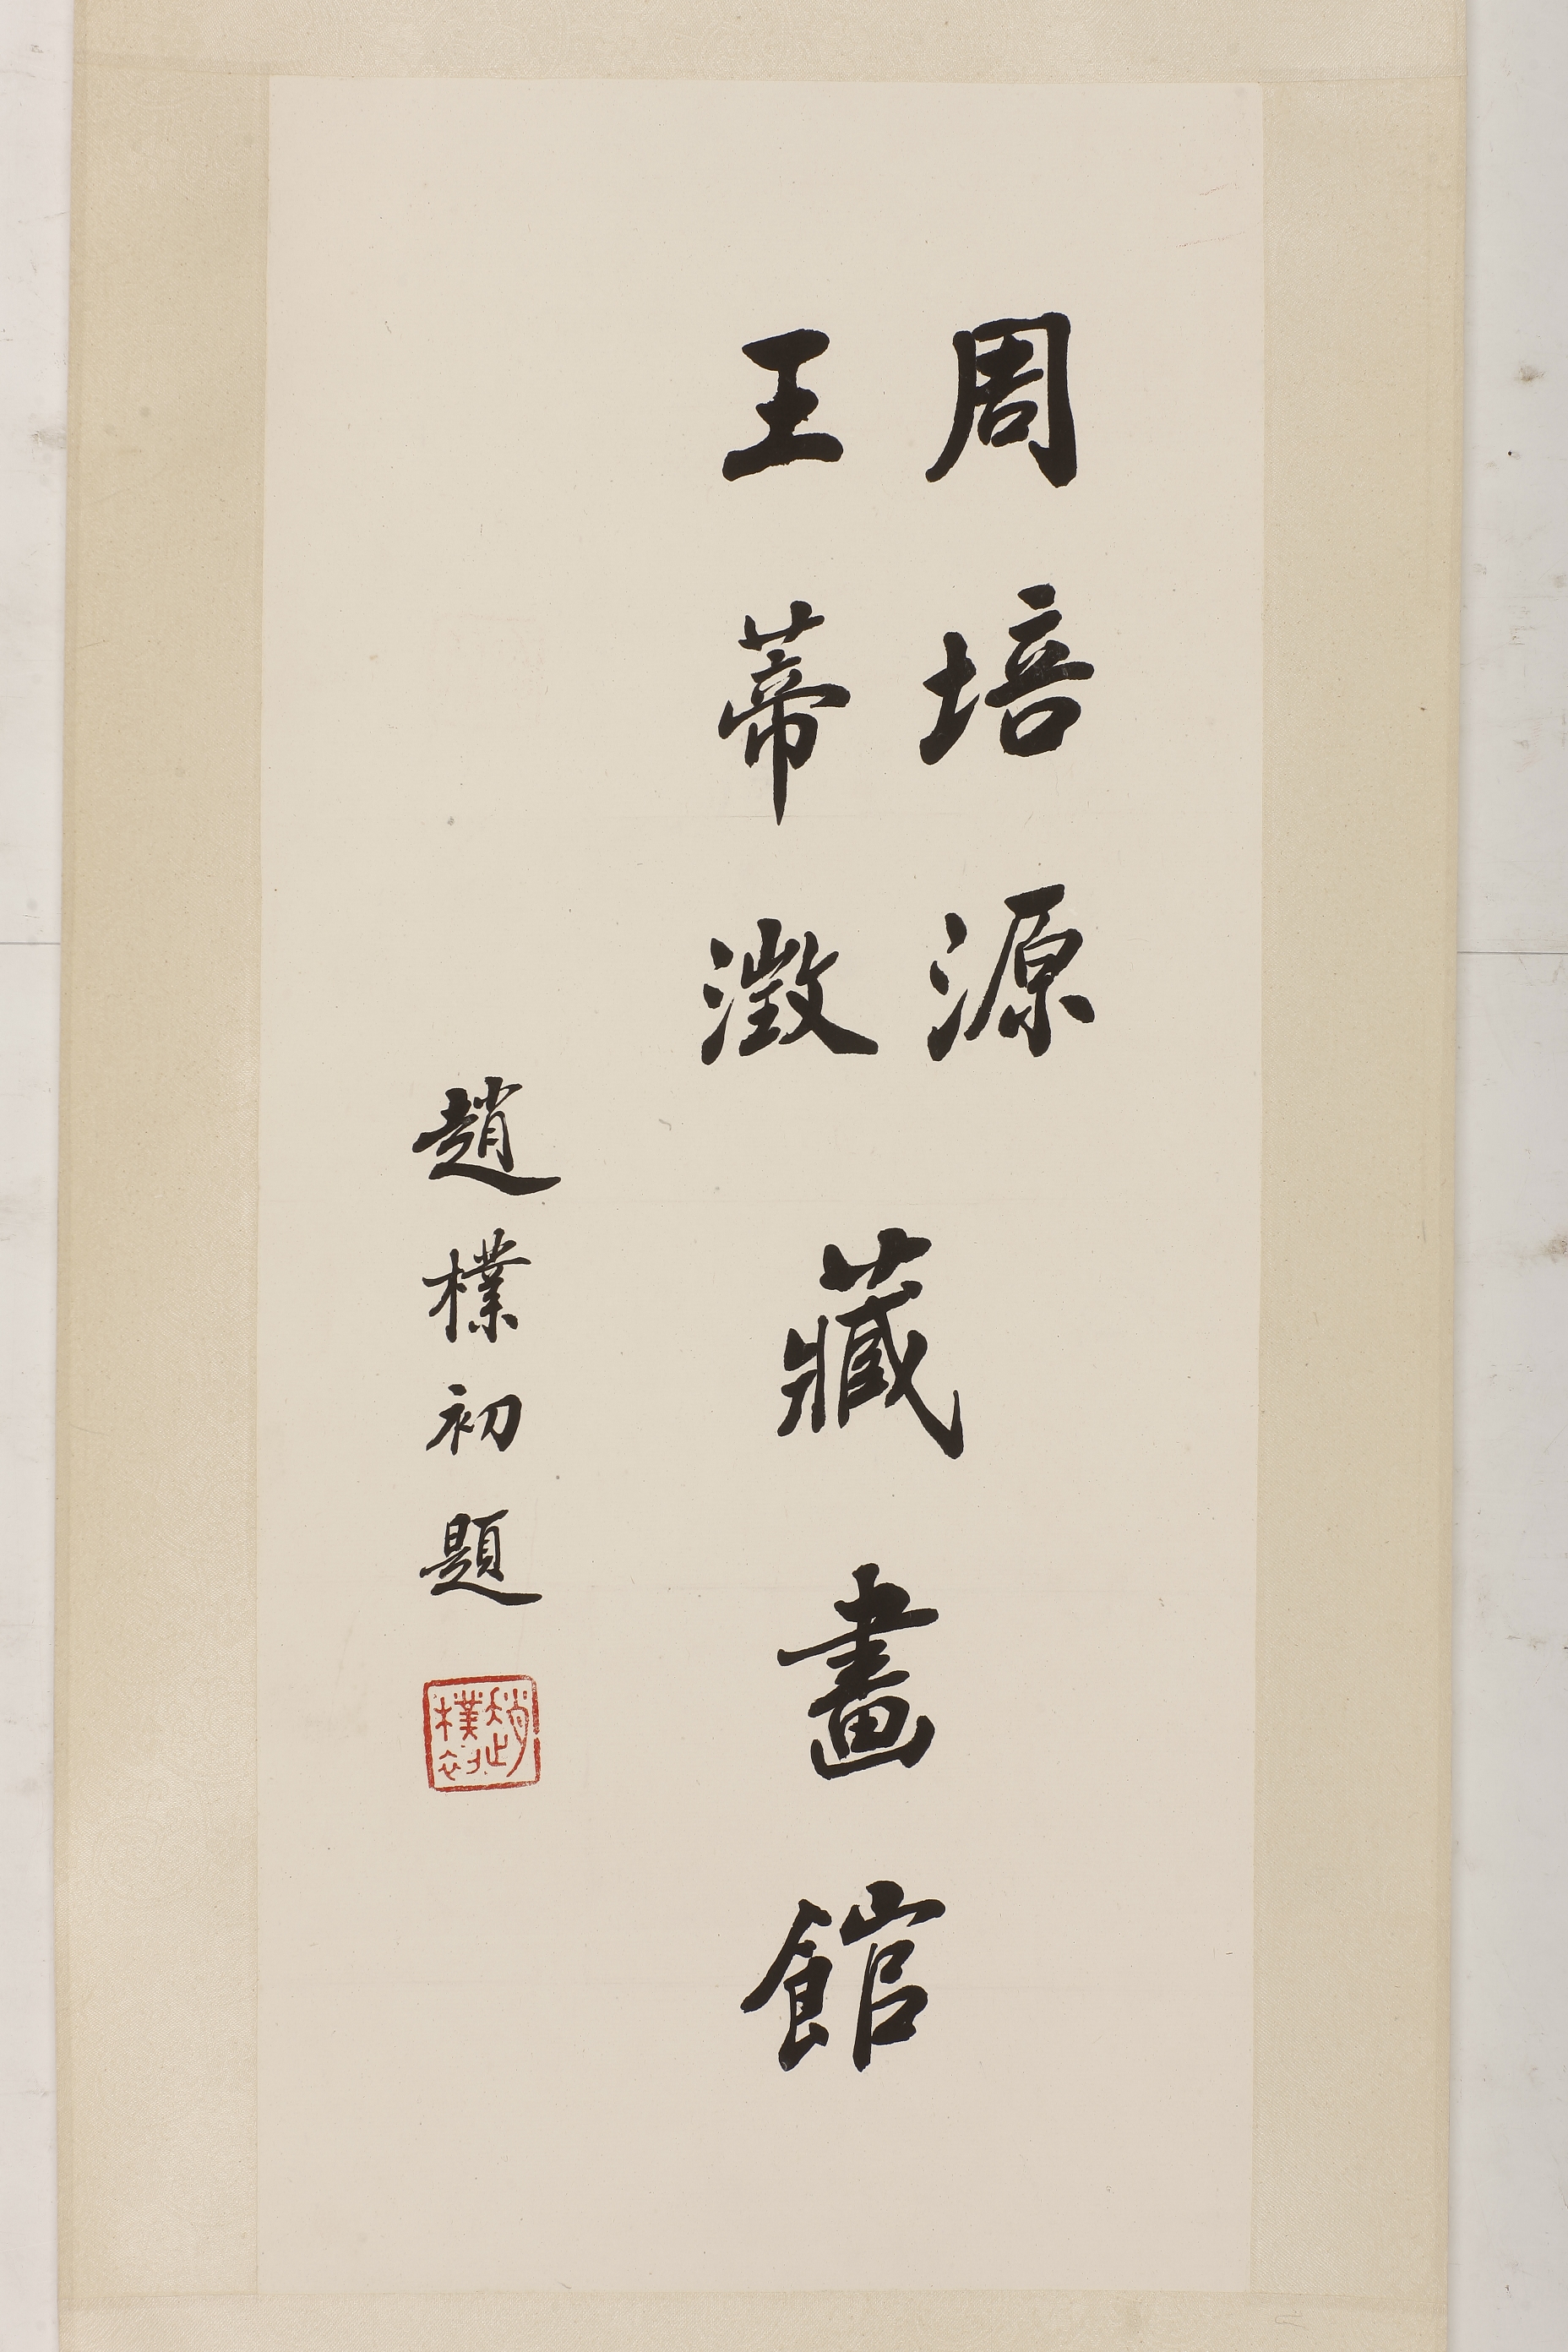 周培源
王蒂澂
藏畫館
趙樸初題
趙樸初